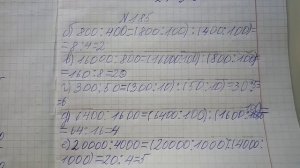 № 185
б) 800:400=(800:100):(400:100)=
=8:4=2
в) 16000:800=(16000:100):(800:100)
=160:8=20
г) 300:50=(300:10):(50:10)=30:5=
=6
д) 6400:1600=(6400:100):(1600:100)
=64:16=4
е) 20000:4000=(20000:1000):(4000:
1000)=20:4=5